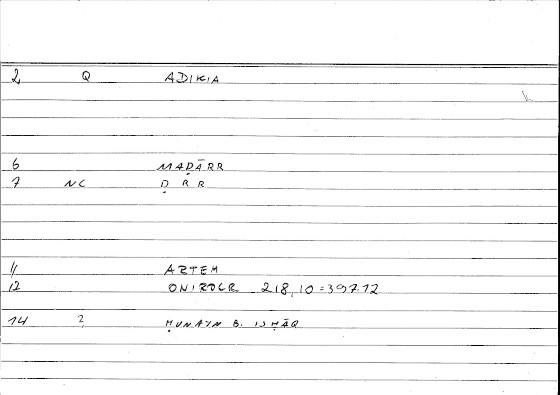 2 Q ADIKIA
6 MAḌĀRR
7 NC Ḍ R R
11 ARTEM
12 ONIROCR 218,10=397.12
14 2, ḤUNAYN B. ISḤĀQ